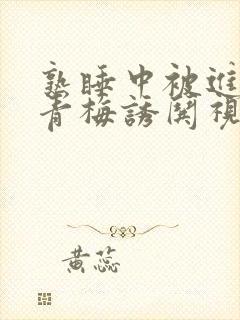 熟睡中被進
青梅誘関視
黃蕊